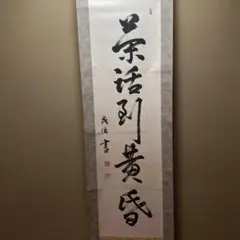 茶話到黄昏
書